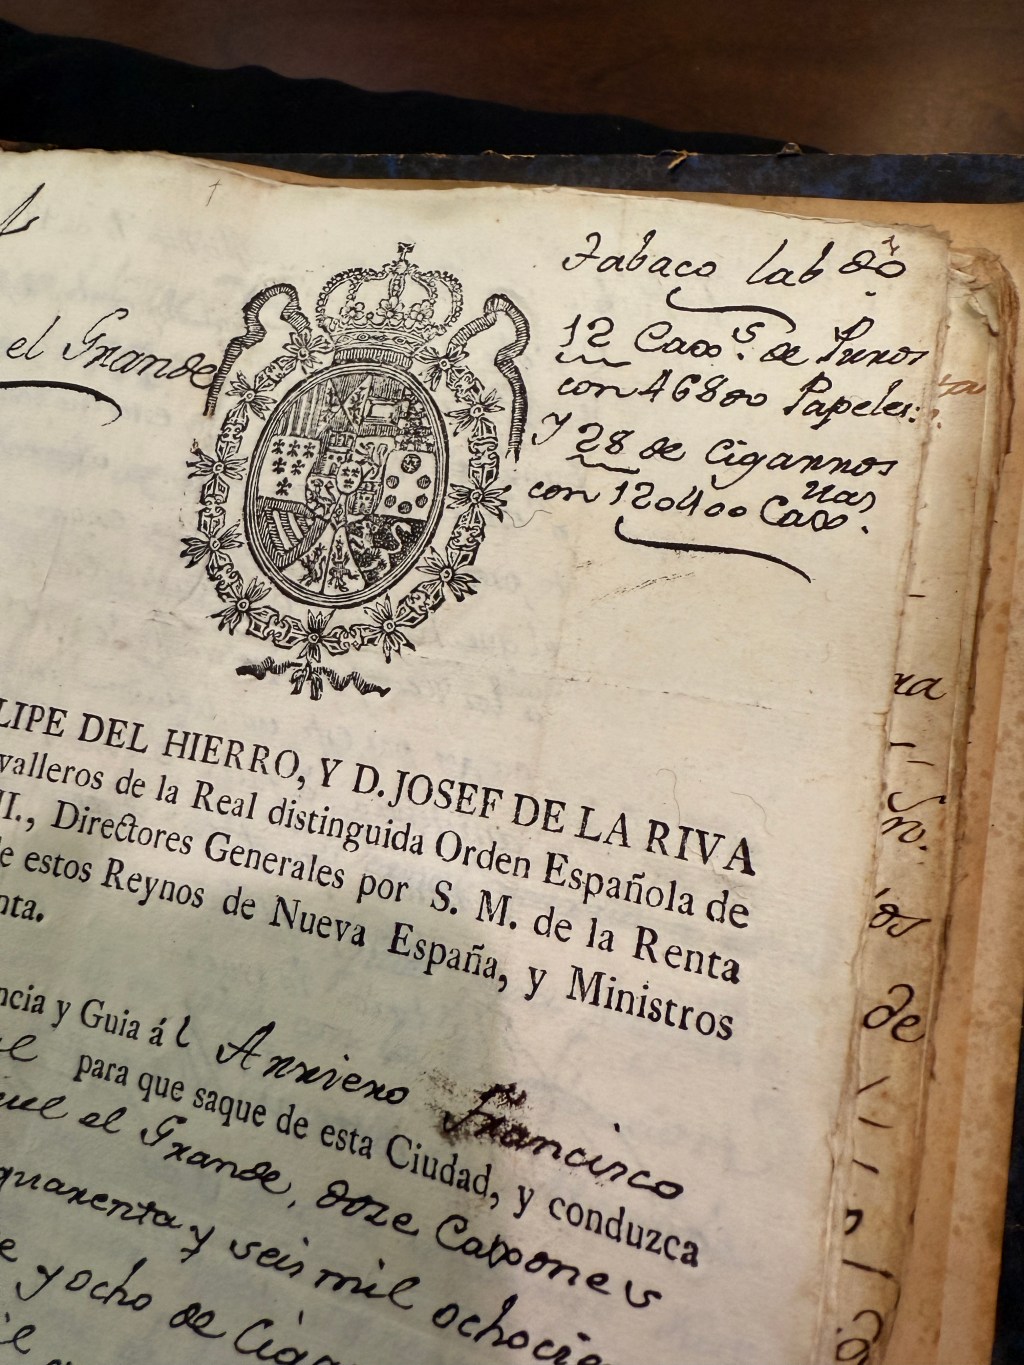 el Grande
Tabaco labdo
12 Caxs. de Puros
con 46800 Papeles.
y 28 de Cigarros
con 120400 Caxas.
LIPE DEL HIERRO, Y D. JOSEF DE LA RIVA
valleros de la Real distinguida Orden Española de
II., Directores Generales por S. M. de la Renta
e estos Reynos de Nueva España, y Ministros
nta.
ncia y Guia ál Arriero Francisco
para que saque de esta Ciudad, y conduzca
uel el Grande, doze Caxones
quarenta y seis mil ochocie
e y ocho de Ciga
ra
Sr.
os
de